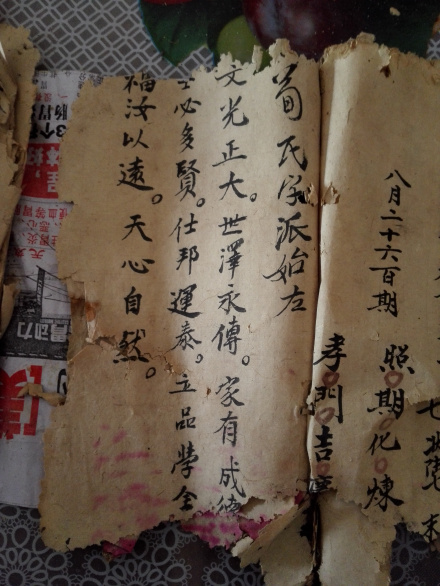 八月二十六百期
照期化煉
孝門吉
荀民字派始左
文光正大。世澤永傳。家有成德
士必多賢。仕邦運泰。立品學全
福汝以遠。天心自然。
动力